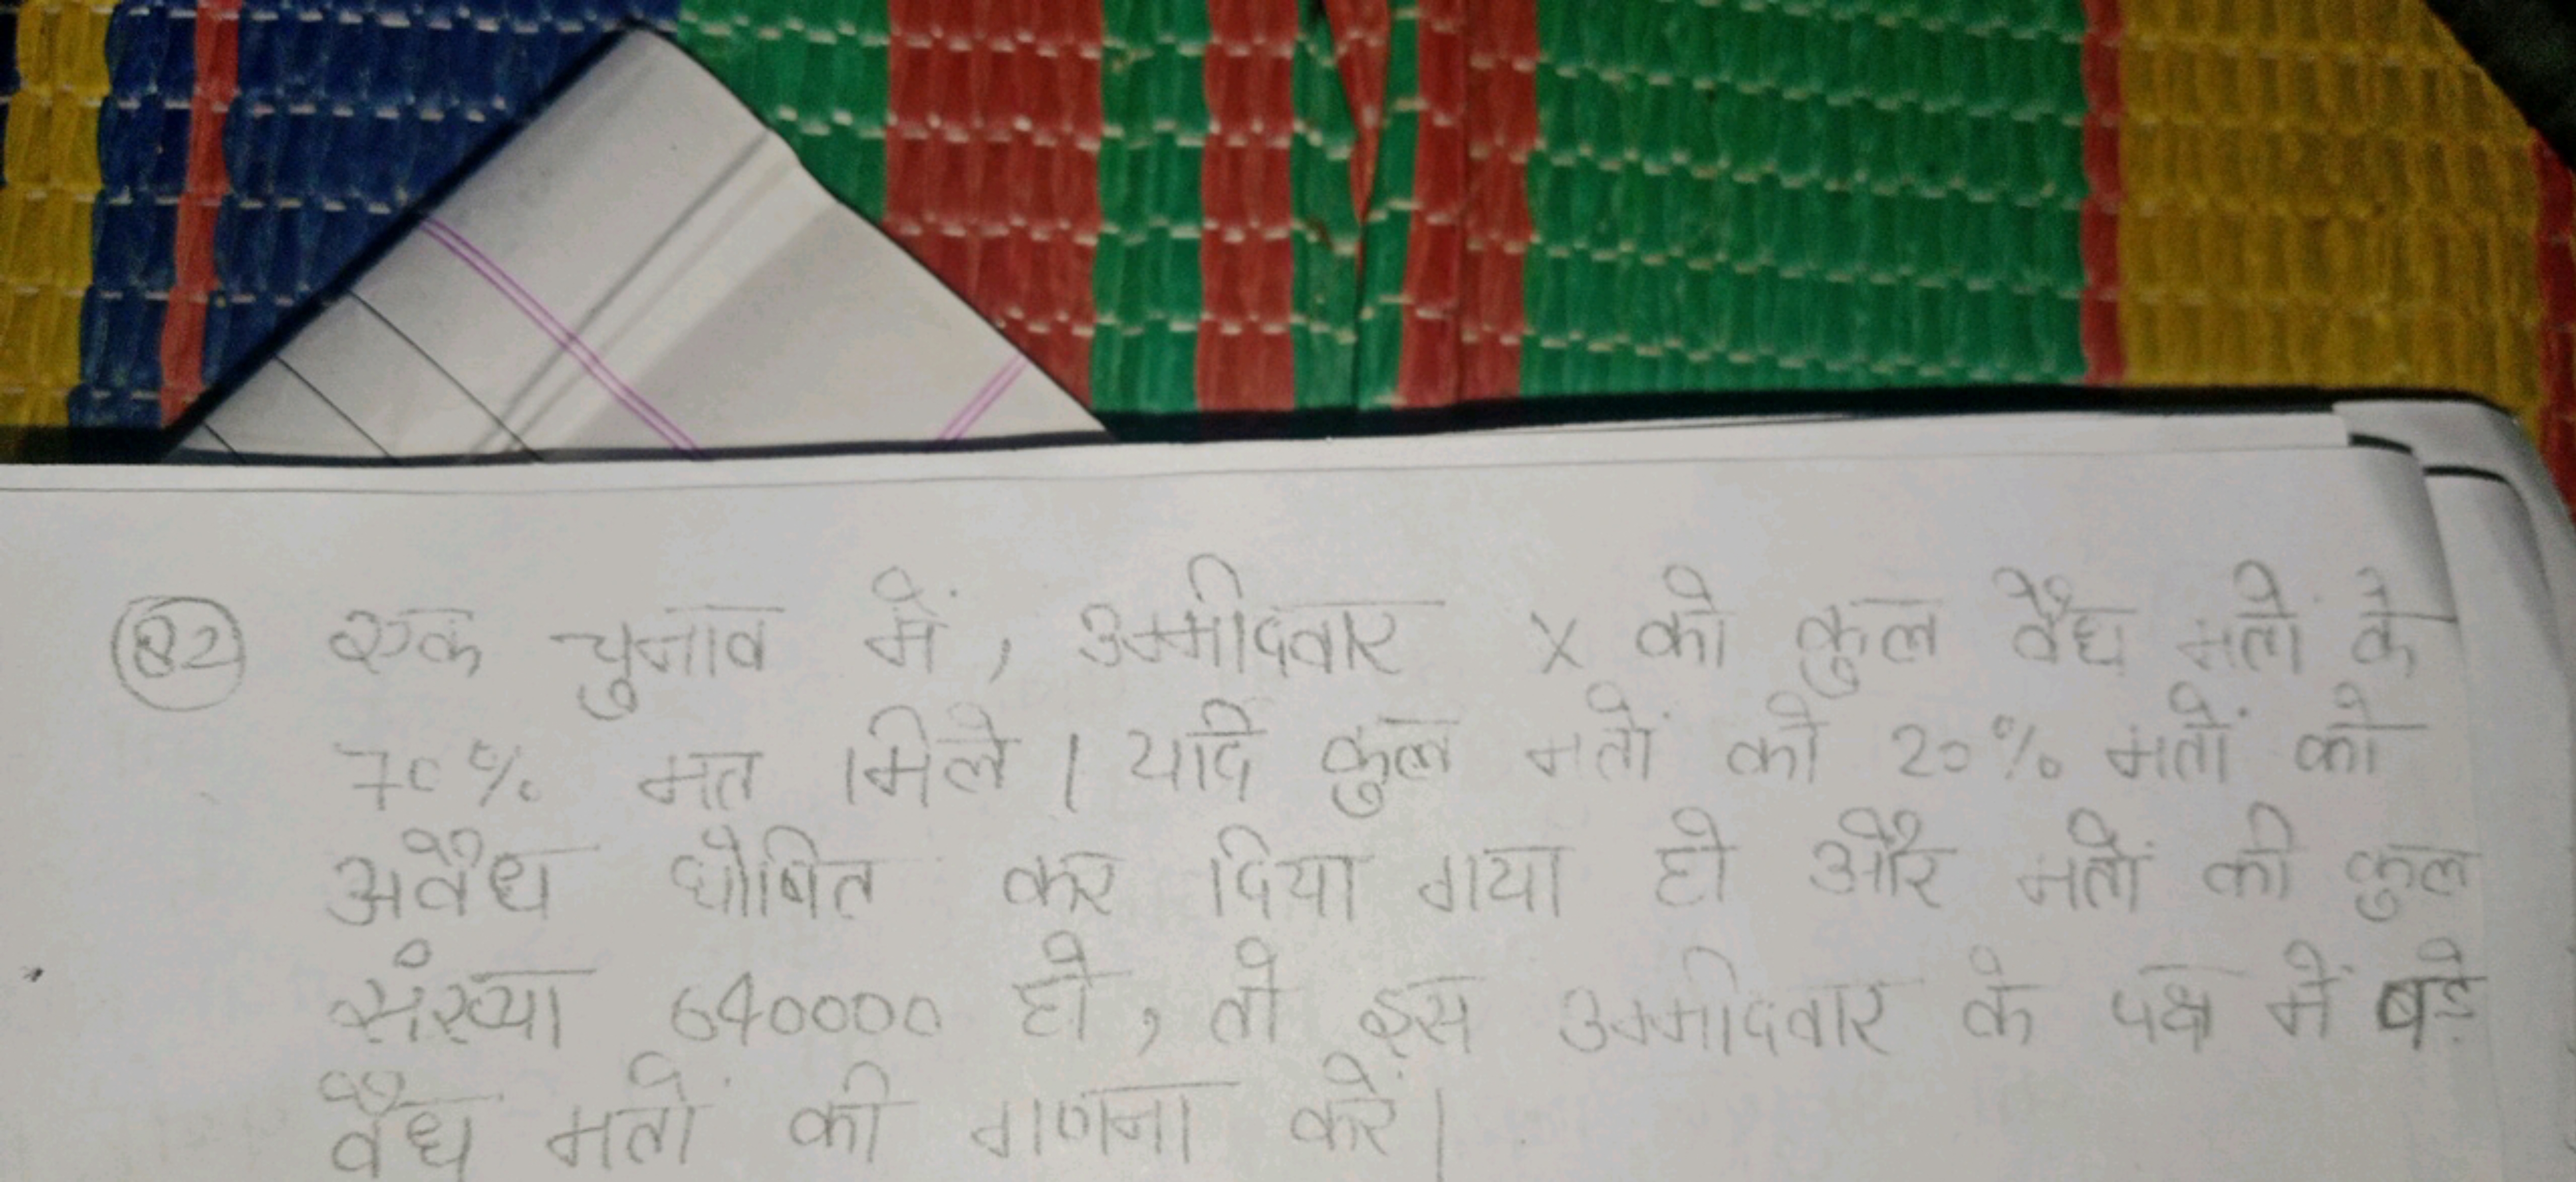 82 एक चुनाव में, उम्मीदवार X को कुल वैध मतो के
70% मत मिले । यदि कुल मतों को 20% मतों को
अवैध घोषित कर दिया गया हो और मतों की कुल
संख्या 640000 हो, तो इस उम्मीदवार के पक्ष में बड़े
वैध मतों की गणना करें।